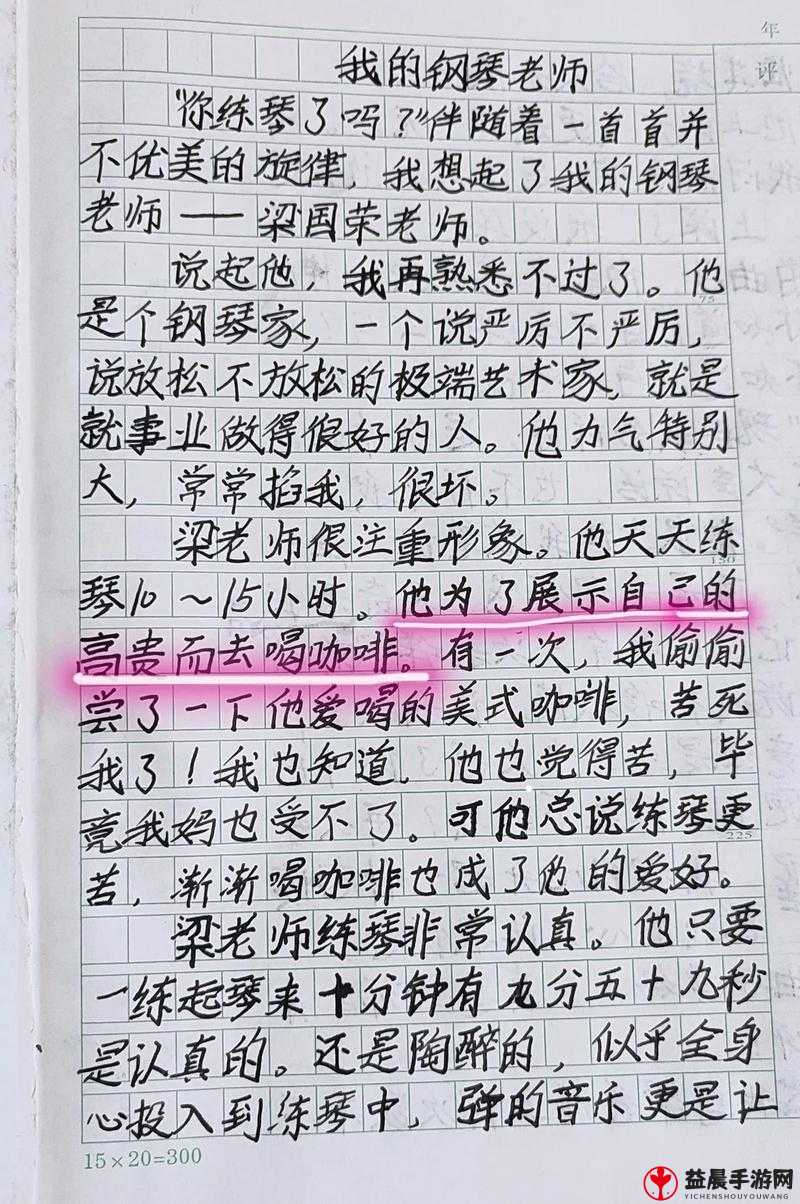 年
评
我的钢琴老师
“你练琴了吗？”伴随着一首首并
不优美的旋律，我想起了我的钢琴
老师——梁国荣老师。
说起他，我再熟悉不过了。他
是个钢琴家，一个说严厉不严厉，
说放松不放松的极端艺术家，就是
就事业做得很好的人。他力气特别
大，常常掐我，很坏。
梁老师很注重形象。他天天练
琴10～15小时。他为了展示自己的
高贵而去喝咖啡。有一次，我偷偷
尝了一下他爱喝的美式咖啡，苦死
我了！我也知道，他也觉得苦，毕
竟我妈也受不了。可他总说练琴更
苦，渐渐喝咖啡也成了他的爱好。
梁老师练琴非常认真。他只要
一练起琴来十分钟有九分五十九秒
是认真的。还是陶醉的，似乎全身
心投入到练琴中，弹的音乐更是让
75
150
225
15×20=300
益晨手游网
YICHENSHOUYOUWANG